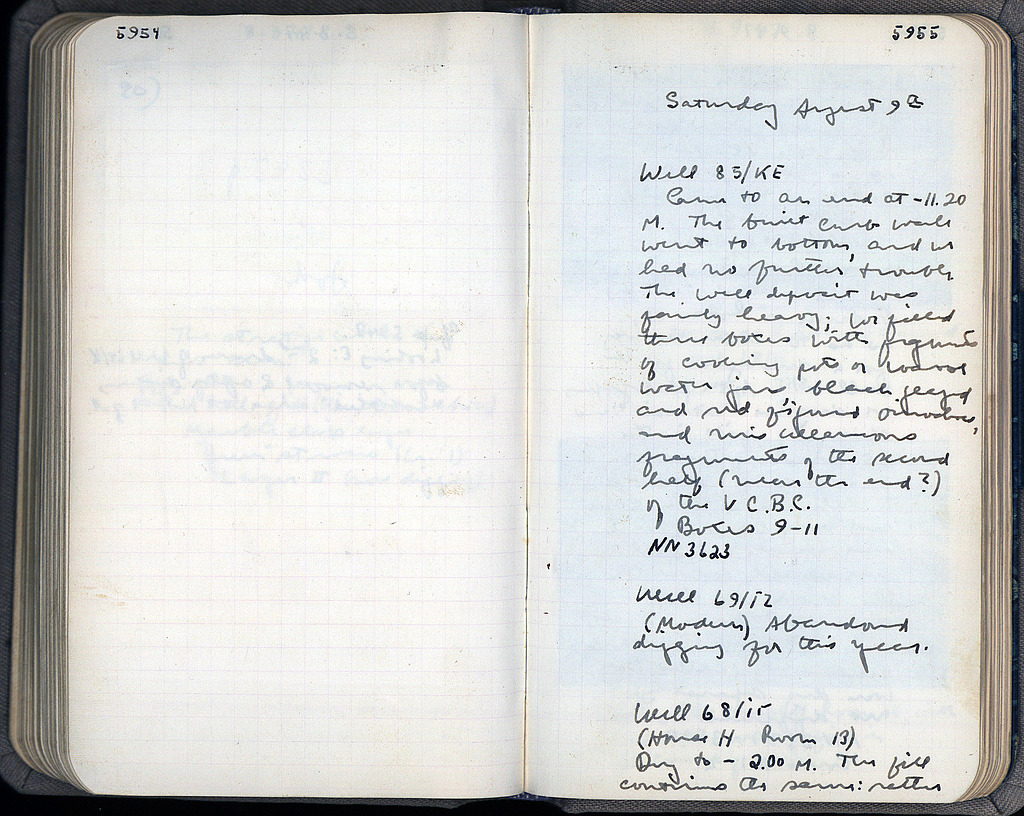 5954
5955
Saturday August 9th
Well 85/KE
Came to an end at -11.20
M. The built curb walls
went to bottom, and we
had no further trouble.
The well deposit was
fairly heavy; we filled
three boxes with fragments
of cooking pots or coarse
water jars, black glazed
and red figured ourselves,
and miscellaneous
fragments of the second
half (near the end?)
of the V C.B.C.
Boxes 9-11
NN 3623
Well 69/
(Modern) Abandoned
digging for this year.
Well 68/
(House H Room 13)
Dug to - 2.00 M. The fill
continues the same: rather